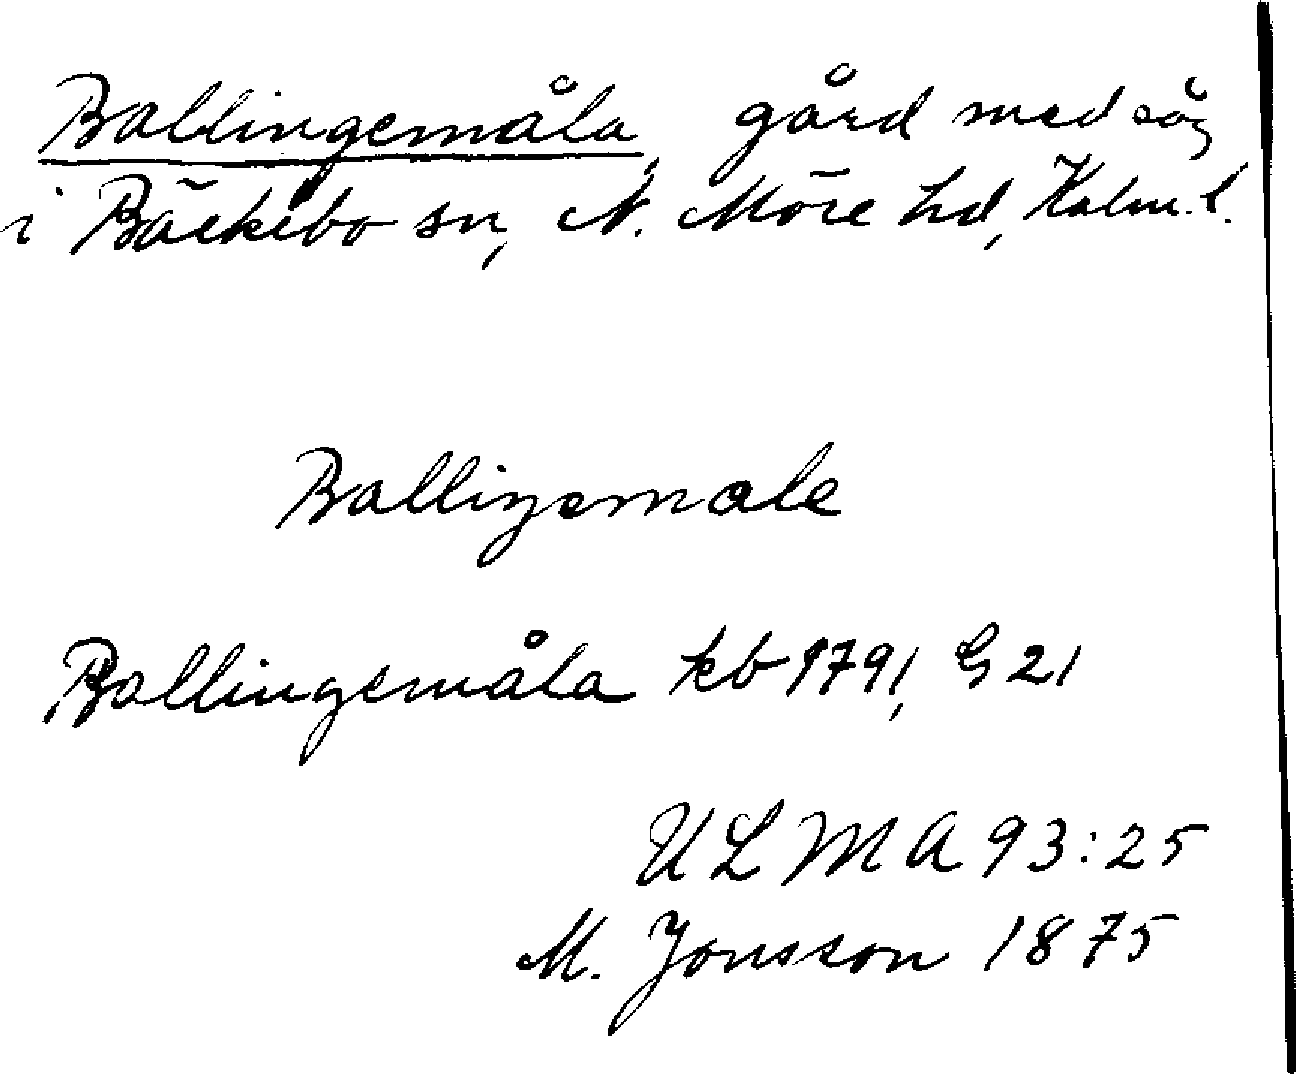 Ballingemåla, gård med såg
i Bäckebo sn, N. Möre hd, Kalm. l.
Ballingemale
Ballingemåla kb 1791, G 21
ULMA 93:25
M. Jonsson 1875